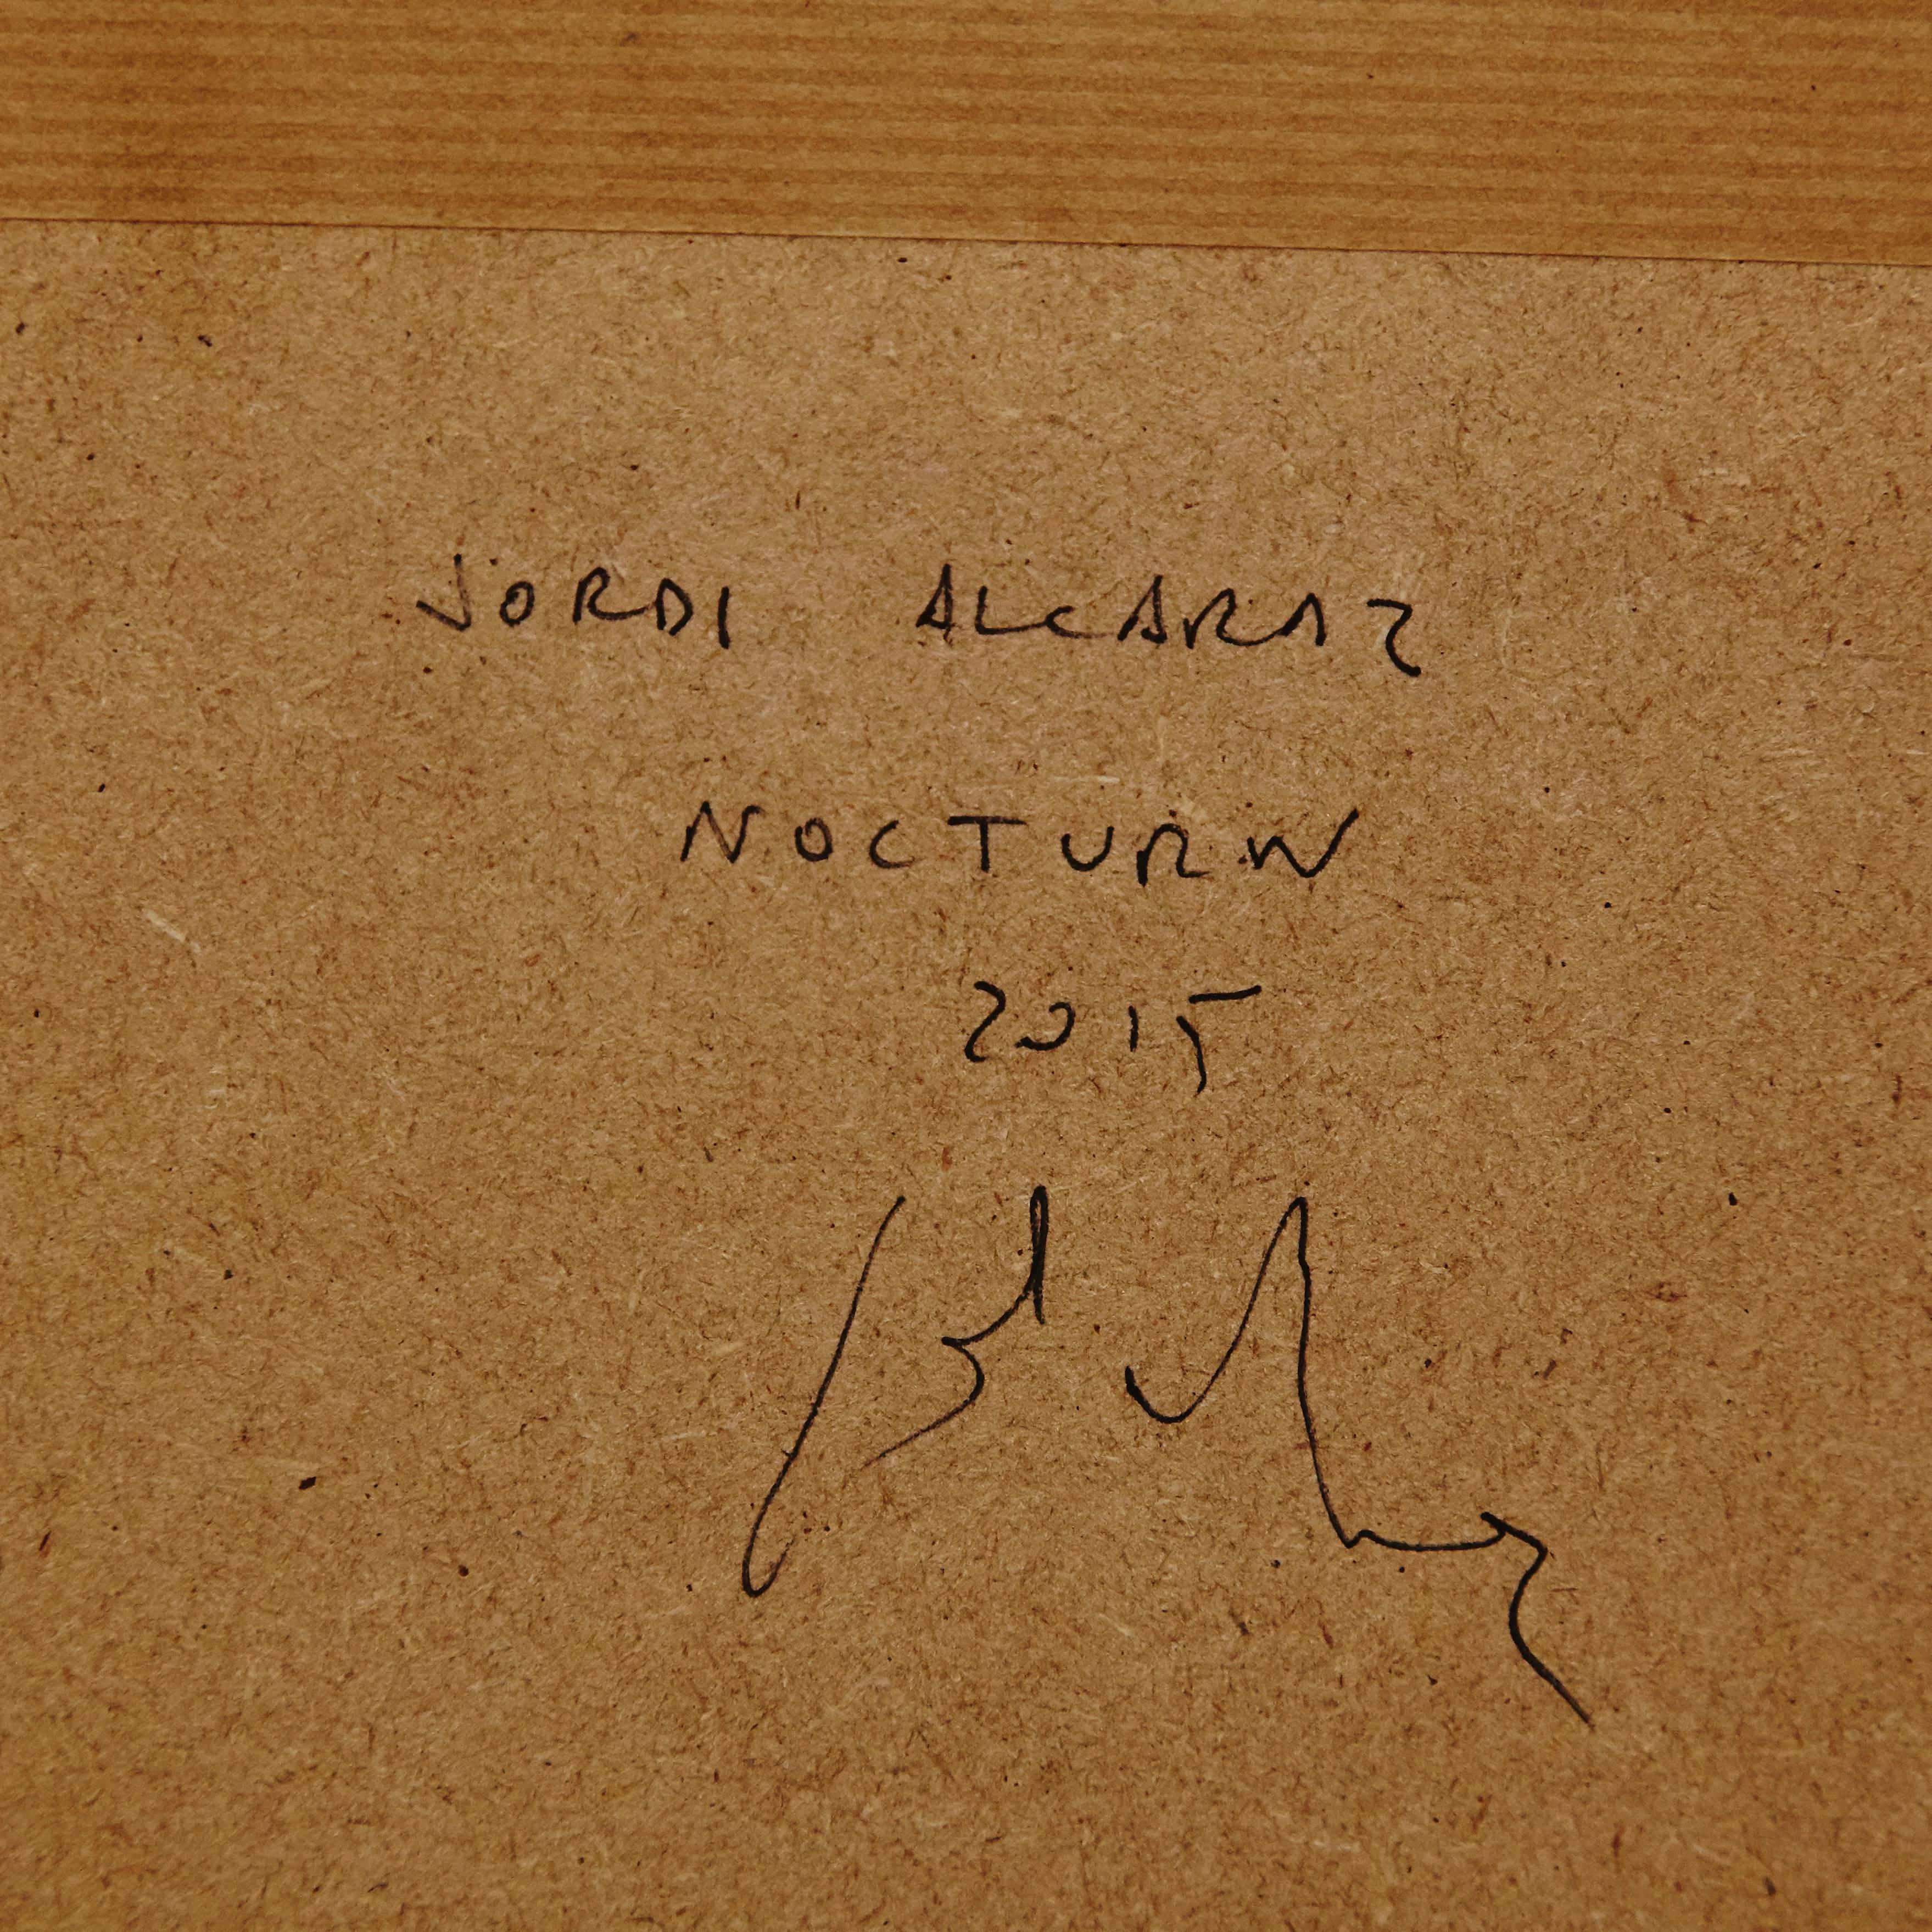 JORDI ALCARAZ
NOCTURN
2015